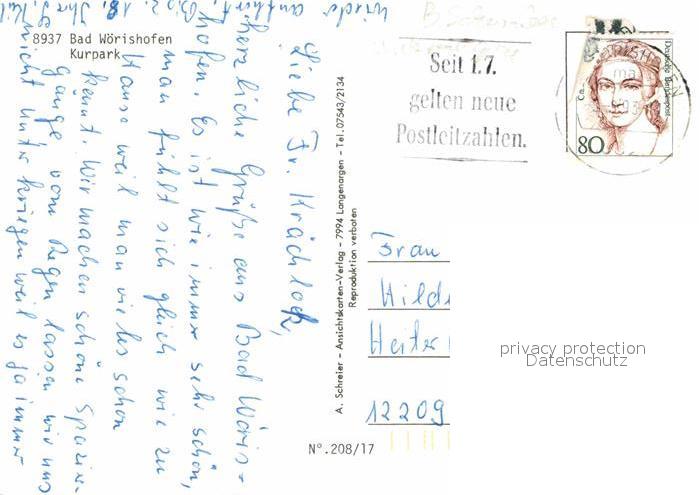 8937 Bad Wörishofen
Kurpark
Liebe Fr. Krächlock,
herzliche Grüße aus Bad Wöris-
hofen. Es ist wie immer sehr schön,
man fühlt sich gleich wie zu
Hause weil man vieles schon
kennt. Wir machen schöne Spazier-
gänge, vom Regen lassen wir uns
nicht unterkriegen weil es ja immer
wieder aufhört. Bis z. 18. Ihre
A. Schreier - Ansichtskarten-Verlag - 7994 Langenargen - Tel. 07543/2134
Reproduktion verboten
N°.208/17
Seit 1.7.
gelten neue
Postleitzahlen.
Deutsche Bundespost
80
Frau
Hild
Heiter
12209
privacy protection
Datenschutz